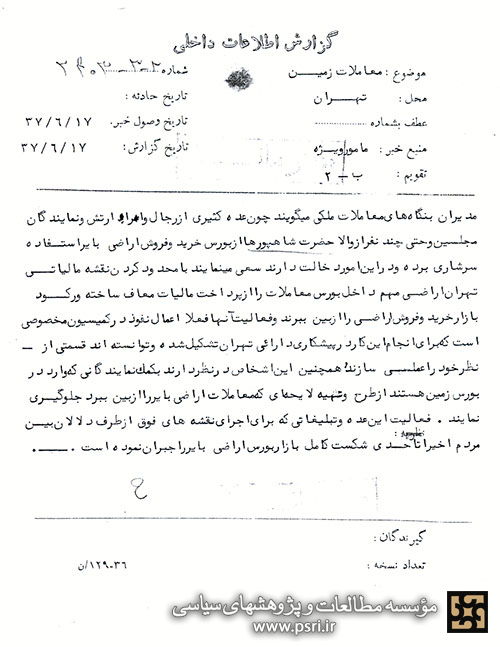 گزارش اطلاعات داخلی
موضوع : معاملات زمین
شماره
محل : تهران
تاریخ حادثه :
عطف بشماره
تاریخ وصول خبر: ۳۷/۶/۱۷
منبع خبر : مامور ویژه
تاریخ گزارش: ۳۷/۶/۱۷
تقویم : ب - ۲
مدیران بنگاه های معاملات ملکی میگویند چون عده کثیری از رجال و امراء ارتش و نمایندگان
مجلسین وحتی چند نفر از والا حضرت شاهپورها از بورس خرید و فروش اراضی بایر استفاده
سرشاری برده و در این امور دخالت دارند سعی مینمایند با محدود کردن نقشه مالیاتی
تهران اراضی مهم داخل بورس معاملات را از پرداخت مالیات معاف ساخته و رکود
بازار خرید و فروش اراضی را از بین ببرند و فعالیت آنها فعلا اعمال نفوذ در کمیسیون مخصوصی
است که برای انجام این کار در پیشکاری دارائی تهران تشکیل شده و توانسته اند قسمتی از ـ
نظر خود را عملی سازند و همچنین این اشخاص در نظر دارند بکمک نمایندگانی که وارد در
بورس زمین هستند از طرح و تهیه لایحه ای که معاملات اراضی بایر را از بین ببرد جلوگیری
نمایند . فعالیت این عده و تبلیغاتی که برای اجرای نقشه های فوق از طرف دلالان بین
مردم اخیرا تا حدی شکست کامل بازار بورس اراضی بایر را جبران نموده است .
گیرندگان :
تعداد نسخه :
۱۲۹-۳۶/ن
مؤسسه مطالعات و پژوهشهای سیاسی
www.psri.ir